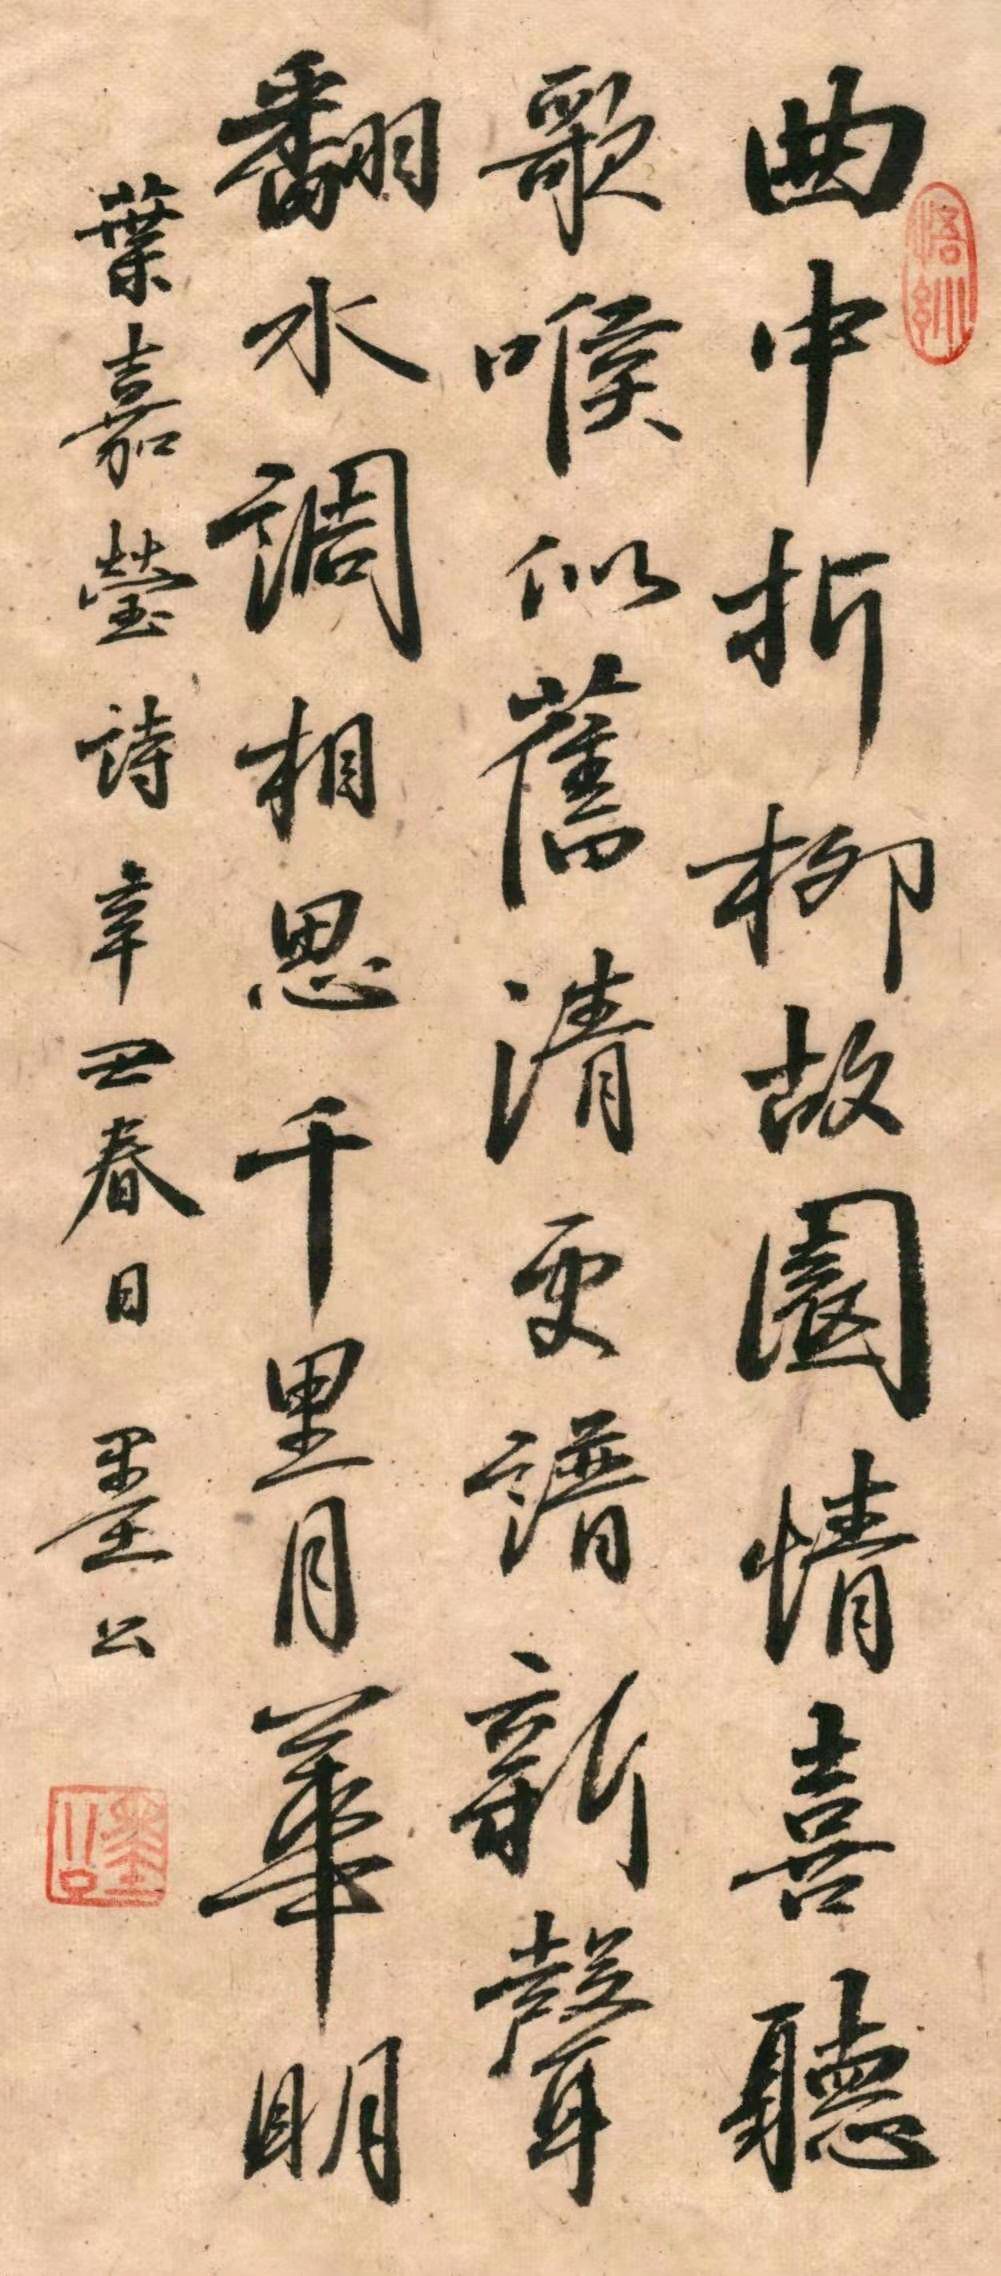 曲中折柳故園情喜聽
歌喉似舊清更譜新聲
翻水調相思千里月華明
葉嘉瑩詩辛丑春日墨公
墨公